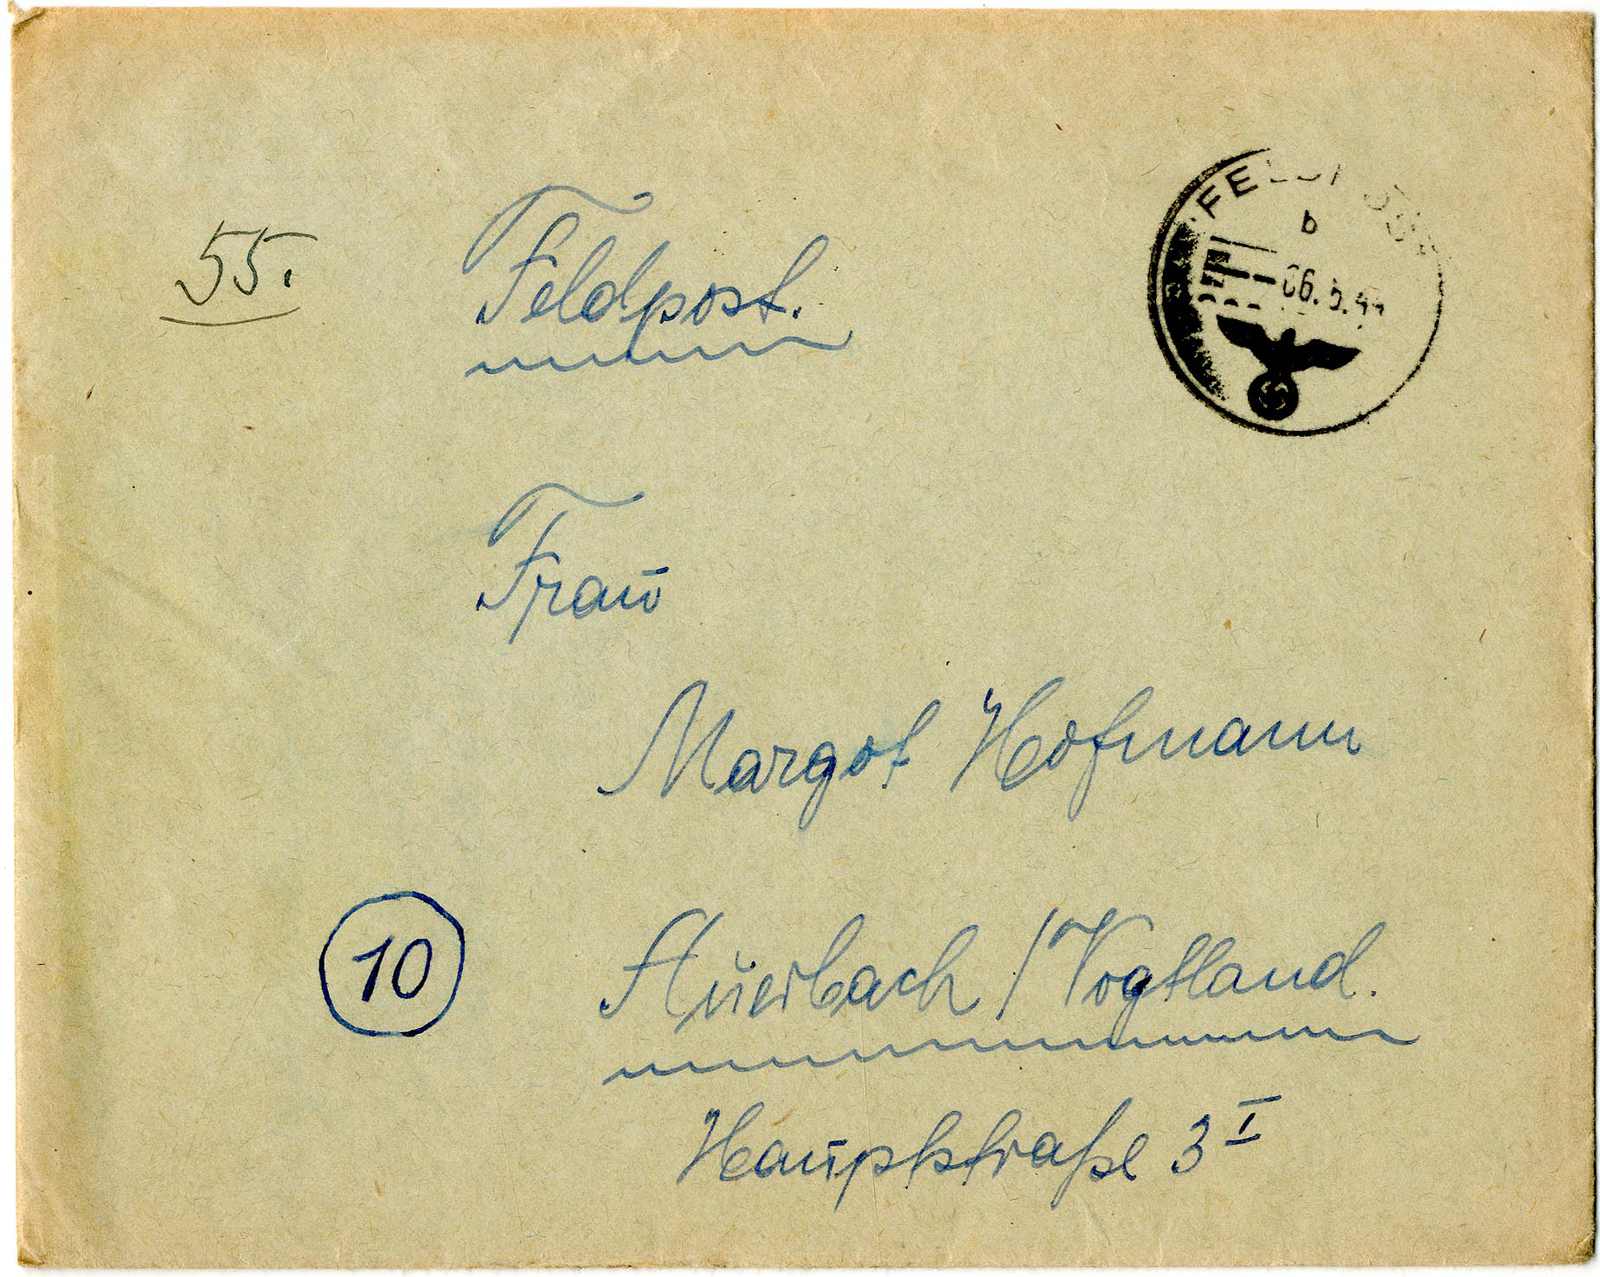 55.
Feldpost.
b
06.5.44
Frau
Margot Hofmann
10
Auerbach / Vogtland.
Hauptstraße 3 I